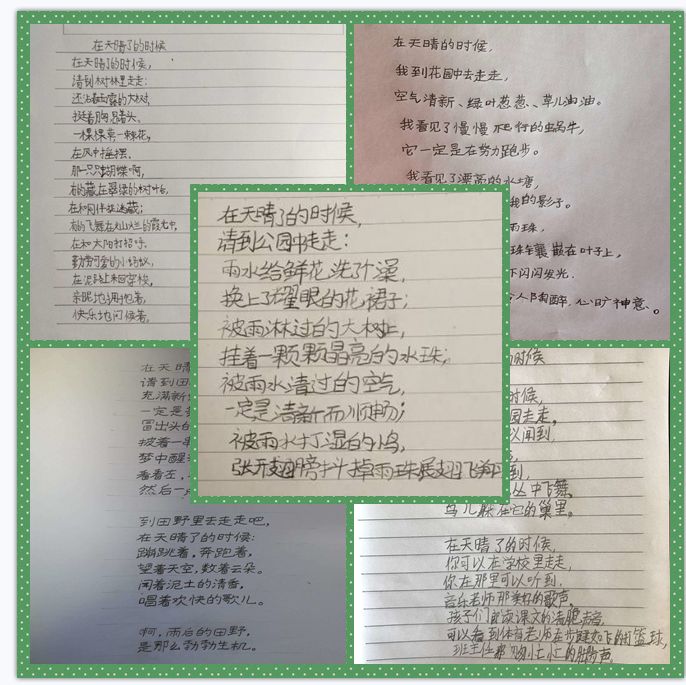 在天晴了的时候
在天晴了的时候,
请到树林里走走:
还沾着露的大树,
挺着胸昂着头、
一棵棵 花,
在风中摇摆.
那一只只蝴蝶啊,
有的藏在翠绿的树叶后,
在和同伴捉迷藏;
有的飞舞在灿烂的霞光中,
在和太阳打招呼.
勤劳可爱的小蚂蚁,
在泥路上来回穿梭,
亲昵地拥抱着,
快乐地问候着,
在天晴的时候,
我到花园中去走走,
空气清新、绿叶葱葱、草儿油油。
我看见了慢慢爬行的蜗牛,
它一定是在努力跑步。
我看见了漂亮的水塘,
我的影子。
雨珠,
珠镶嵌在叶子上,
下闪闪发光.
令人陶醉,心旷神意、。
在天晴了的时候,
请到公园中走走:
雨水给鲜花洗了澡,
换上了耀眼的花裙子;
被雨淋过的大树上,
挂着一颗颗晶亮的水珠;
被雨水清过的空气,
一定是清新而顺畅;
被雨水打湿的小鸟,
张开翅膀抖掉雨珠展翅飞翔
在天晴
请到田
充满新
一定是
冒出头的
披着一串
梦中醒
看看左,
然后一
到田野里去走走吧,
在天晴了的时候:
蹦跳着,奔跑着,
望着天空,数着云朵。
闻着泥土的清香,
唱着欢快的歌儿。
啊,雨后的田野,
是那么勃勃生机。
的时候
时候,
园走走,
以闻到,
到,
丛中飞舞。
鸟儿躲在它的巢里。
在天晴了的时候,
你可以在学校里走走,
你在那里可以听到.
音乐老师那美好的歌声,
孩子们 读课文的清脆声音,
可以看到体育老师在步健如飞的打篮球,
班主任那匆忙忙的脚步声,